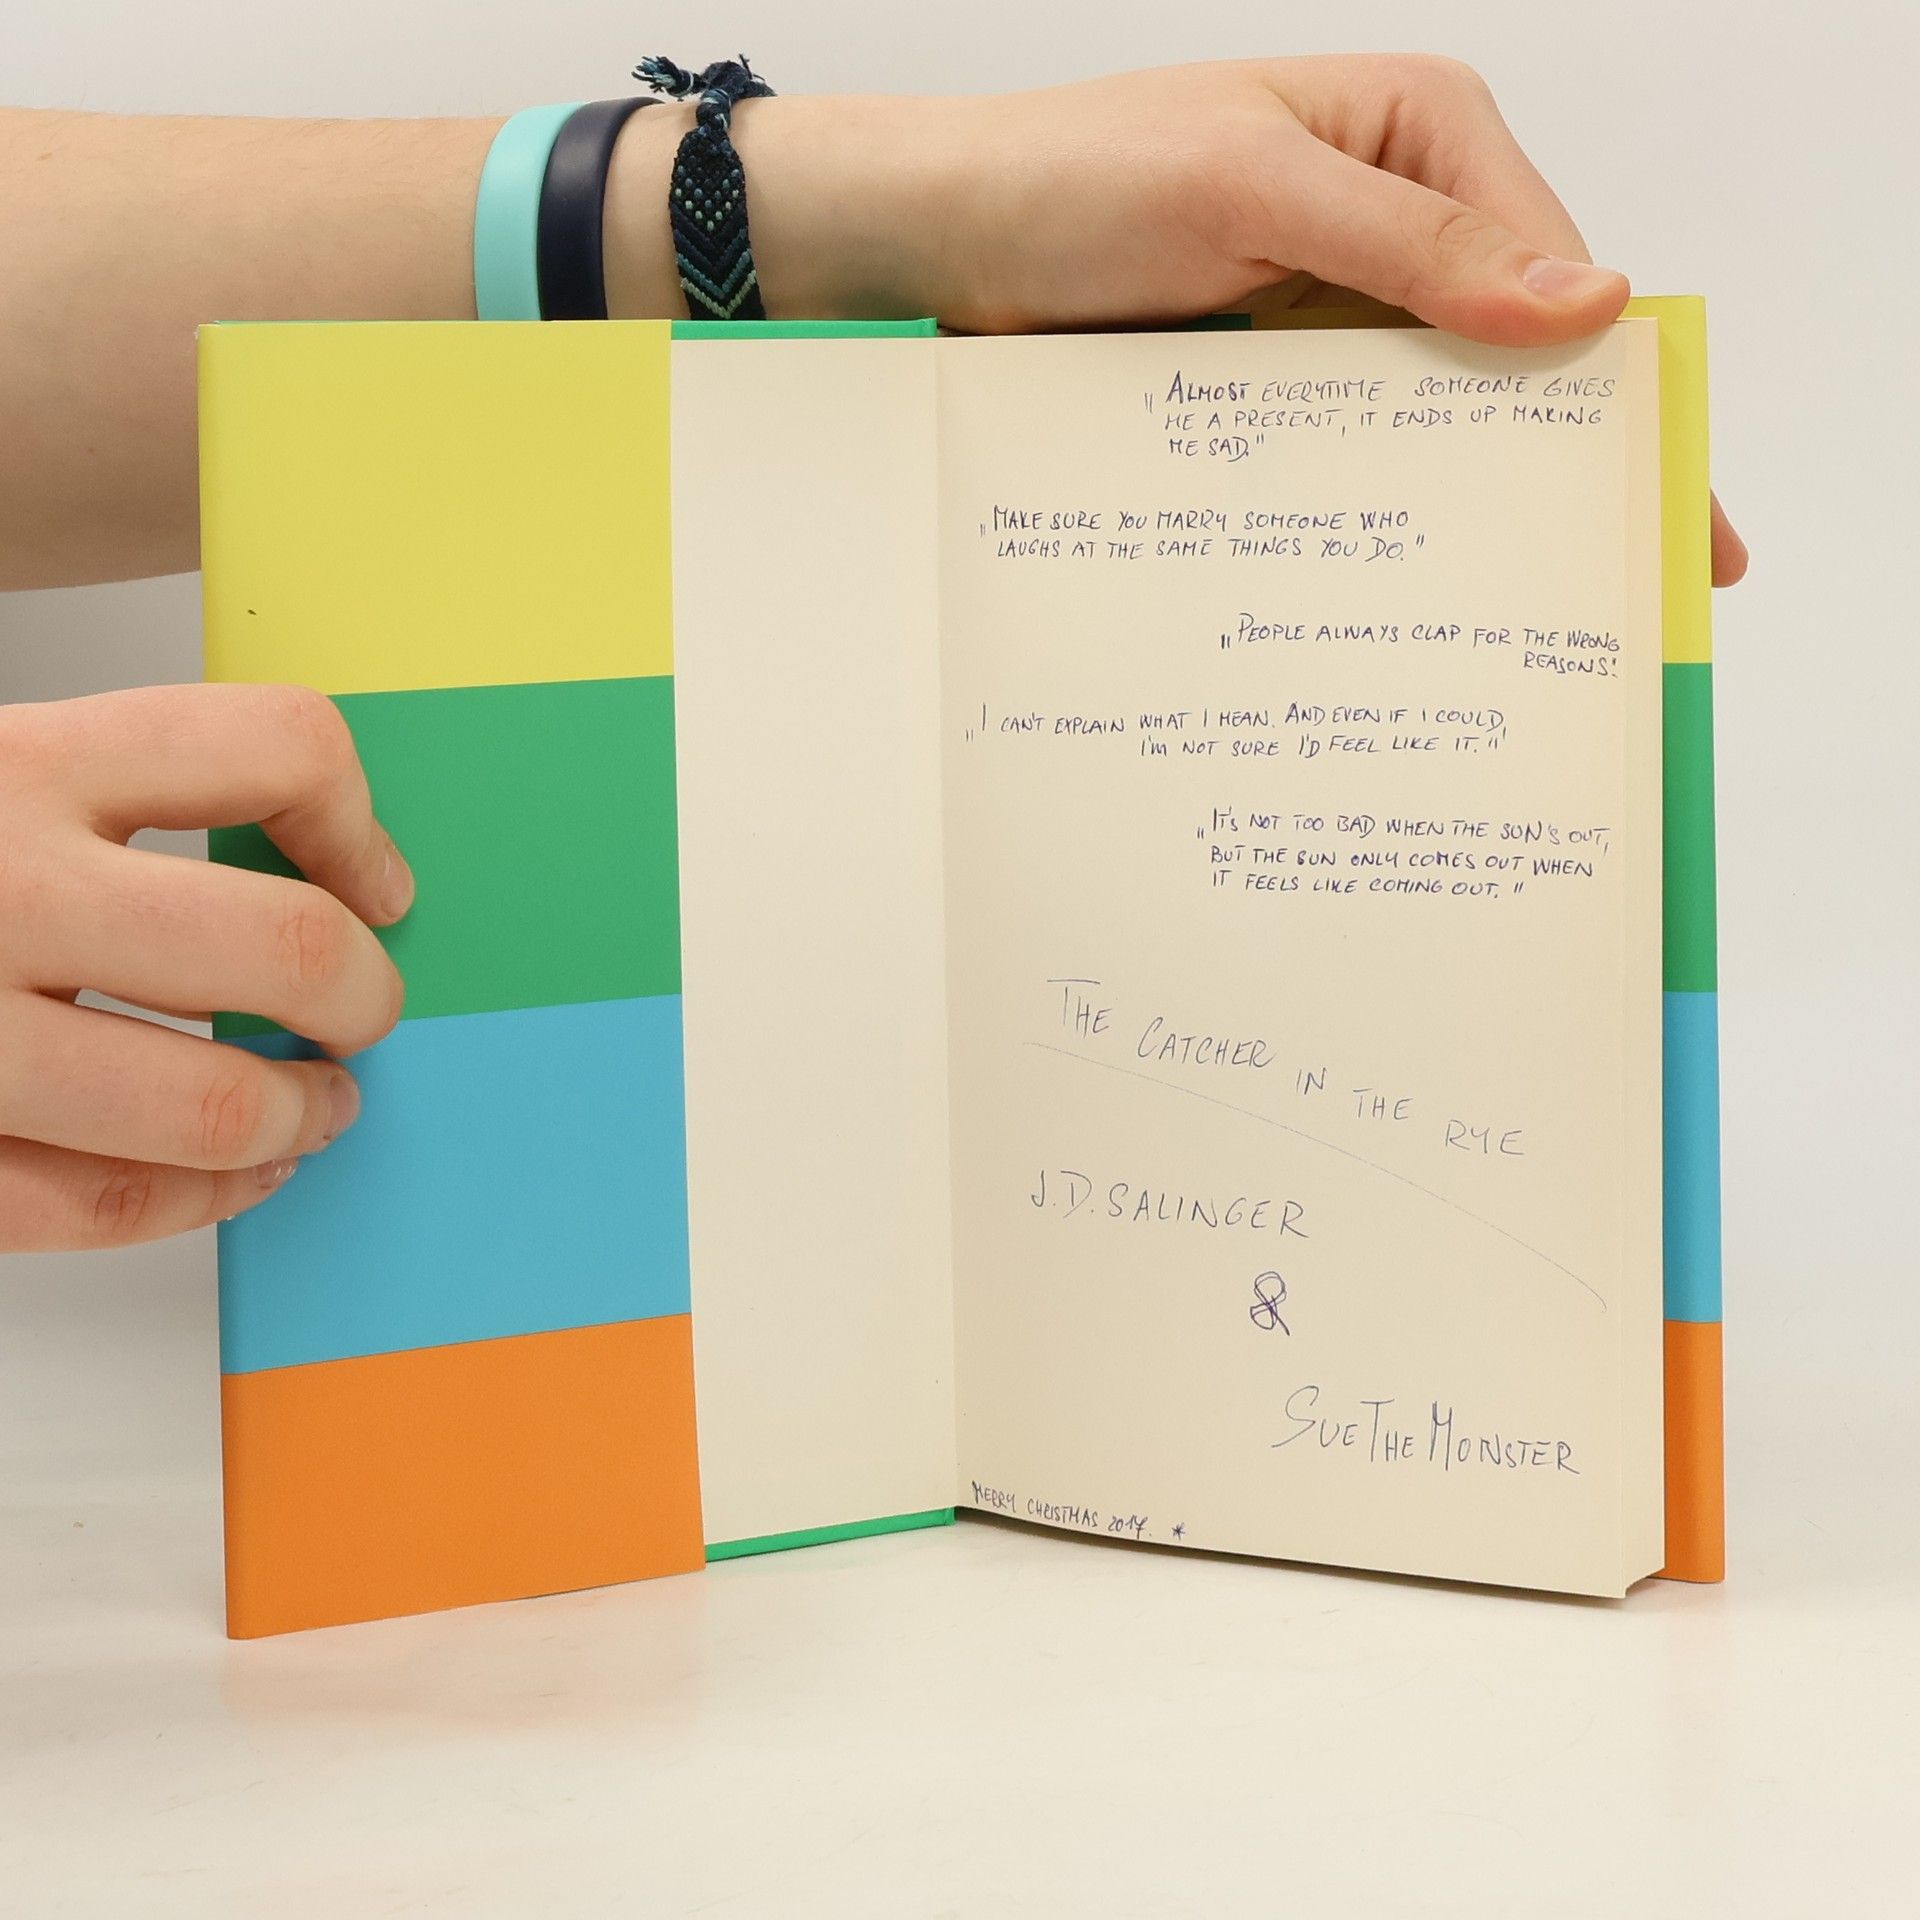 „ALMOST EVERYTIME SOMEONE GIVES
ME A PRESENT, IT ENDS UP MAKING
ME SAD."
„MAKE SURE YOU MARRY SOMEONE WHO
LAUGHS AT THE SAME THINGS YOU DO."
„PEOPLE ALWAYS CLAP FOR THE WRONG
REASONS."
„I CAN'T EXPLAIN WHAT I MEAN. AND EVEN IF I COULD,
I'M NOT SURE I'D FEEL LIKE IT."
„IT'S NOT TOO BAD WHEN THE SUN'S OUT,
BUT THE SUN ONLY COMES OUT WHEN
IT FEELS LIKE COMING OUT."
THE CATCHER IN THE RYE
J.D. SALINGER
&
SUE THE MONSTER
MERRY CHRISTMAS 2017. *